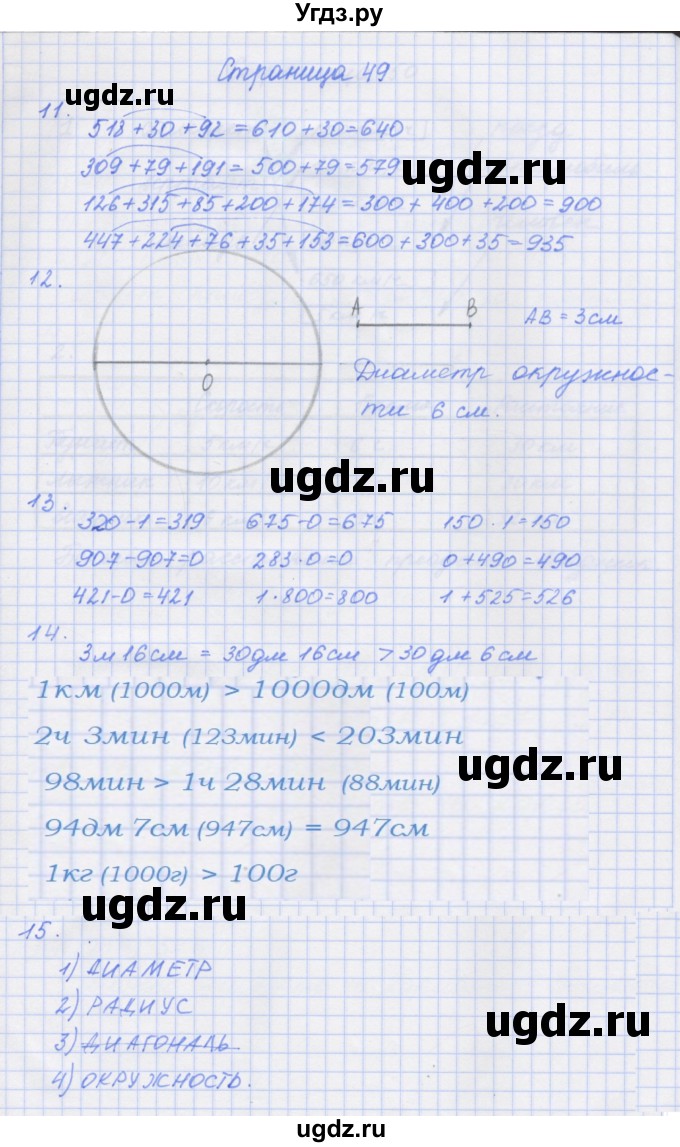 Угдз.ру
Страница 49
ugdz.ru
11.
518+30+92=610+30=640
309+79+191=500+79=579
ugdz.ru
126+315+85+200+174=300+400+200=900
447+224+76+35+153=600+300+35=935
12.
A B AB=3см
O
Диаметр окружнос-
ти 6 см.
ugdz.ru
13.
320-1=319 675-0=675 150·1=150
907-907=0 283·0=0 0+490=490
421-0=421 1·800=800 1+525=526
14.
3м16см = 30дм 16см > 30дм 6см
1км (1000м) > 1000дм (100м)
2ч 3мин (123мин) < 203мин
ugdz.ru
98мин > 1ч 28мин (88мин)
94дм 7см (947см) = 947см
1кг (1000г) > 100г
ugdz.ru
15.
1) ДИАМЕТР
2) РАДИУС
ugdz.ru
3) ДИАГОНАЛЬ
4) ОКРУЖНОСТЬ.
ugdz.ru